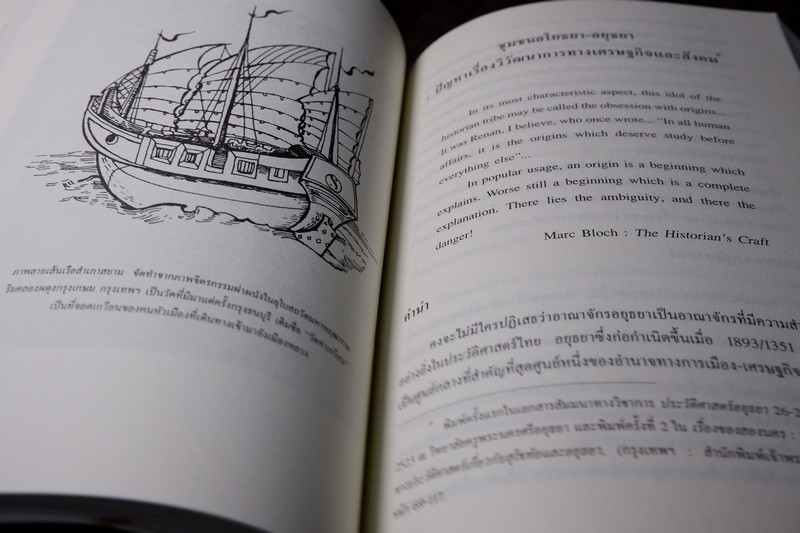 ภาพลายเส้นเรือสำเภาสยาม จัดทำจากภาพจิตรกรรมฝาผนังในอุโบสถวัด
ริมคลองผดุงกรุงเกษม กรุงเทพฯ เป็นวัดที่มีมาแต่ครั้งกรุงธนบุรี เดิมชื่อ
เป็นที่จอดเกวียนของคนหัวเมืองที่เดินทางเข้ามายังเมืองหลวง
ชุมชนอโยธยา-อยุธยา
: ปัญหาเรื่องวิวัฒนาการทางเศรษฐกิจและสังคม*
In its most characteristic aspect, this idol of the
historian tribe may be called the obsession with origins...
It was Renan, I believe, who once wrote... "In all human
affairs, it is the origins which deserve study before
everything else"...
In popular usage, an origin is a beginning which
explains. Worse still a beginning which is a complete
explanation. There lies the ambiguity, and there the
danger!
Marc Bloch : The Historian's Craft
คำนำ
คงจะไม่มีใครปฏิเสธว่าอาณาจักรอยุธยาเป็นอาณาจักรที่มีความสำ
อย่างยิ่งในประวัติศาสตร์ไทย อยุธยาซึ่งก่อกำเนิดขึ้นเมื่อ 1893/1351
เป็นศูนย์กลางที่สำคัญที่สุดศูนย์หนึ่งของอำนาจทางการเมือง-เศรษฐกิจ
* พิมพ์ครั้งแรกในเอกสารสัมมนาทางวิชาการ ประวัติศาสตร์อยุธยา 26-2
2523 ณ วิทยาลัยครูพระนครศรีอยุธยา และพิมพ์ครั้งที่ 2 ใน เรื่องของสองนคร :
ประวัติศาสตร์เกี่ยวกับสุโขทัยและอยุธยา, (กรุงเทพฯ : สำนักพิมพ์เจ้าพระ
หน้า 69-117.